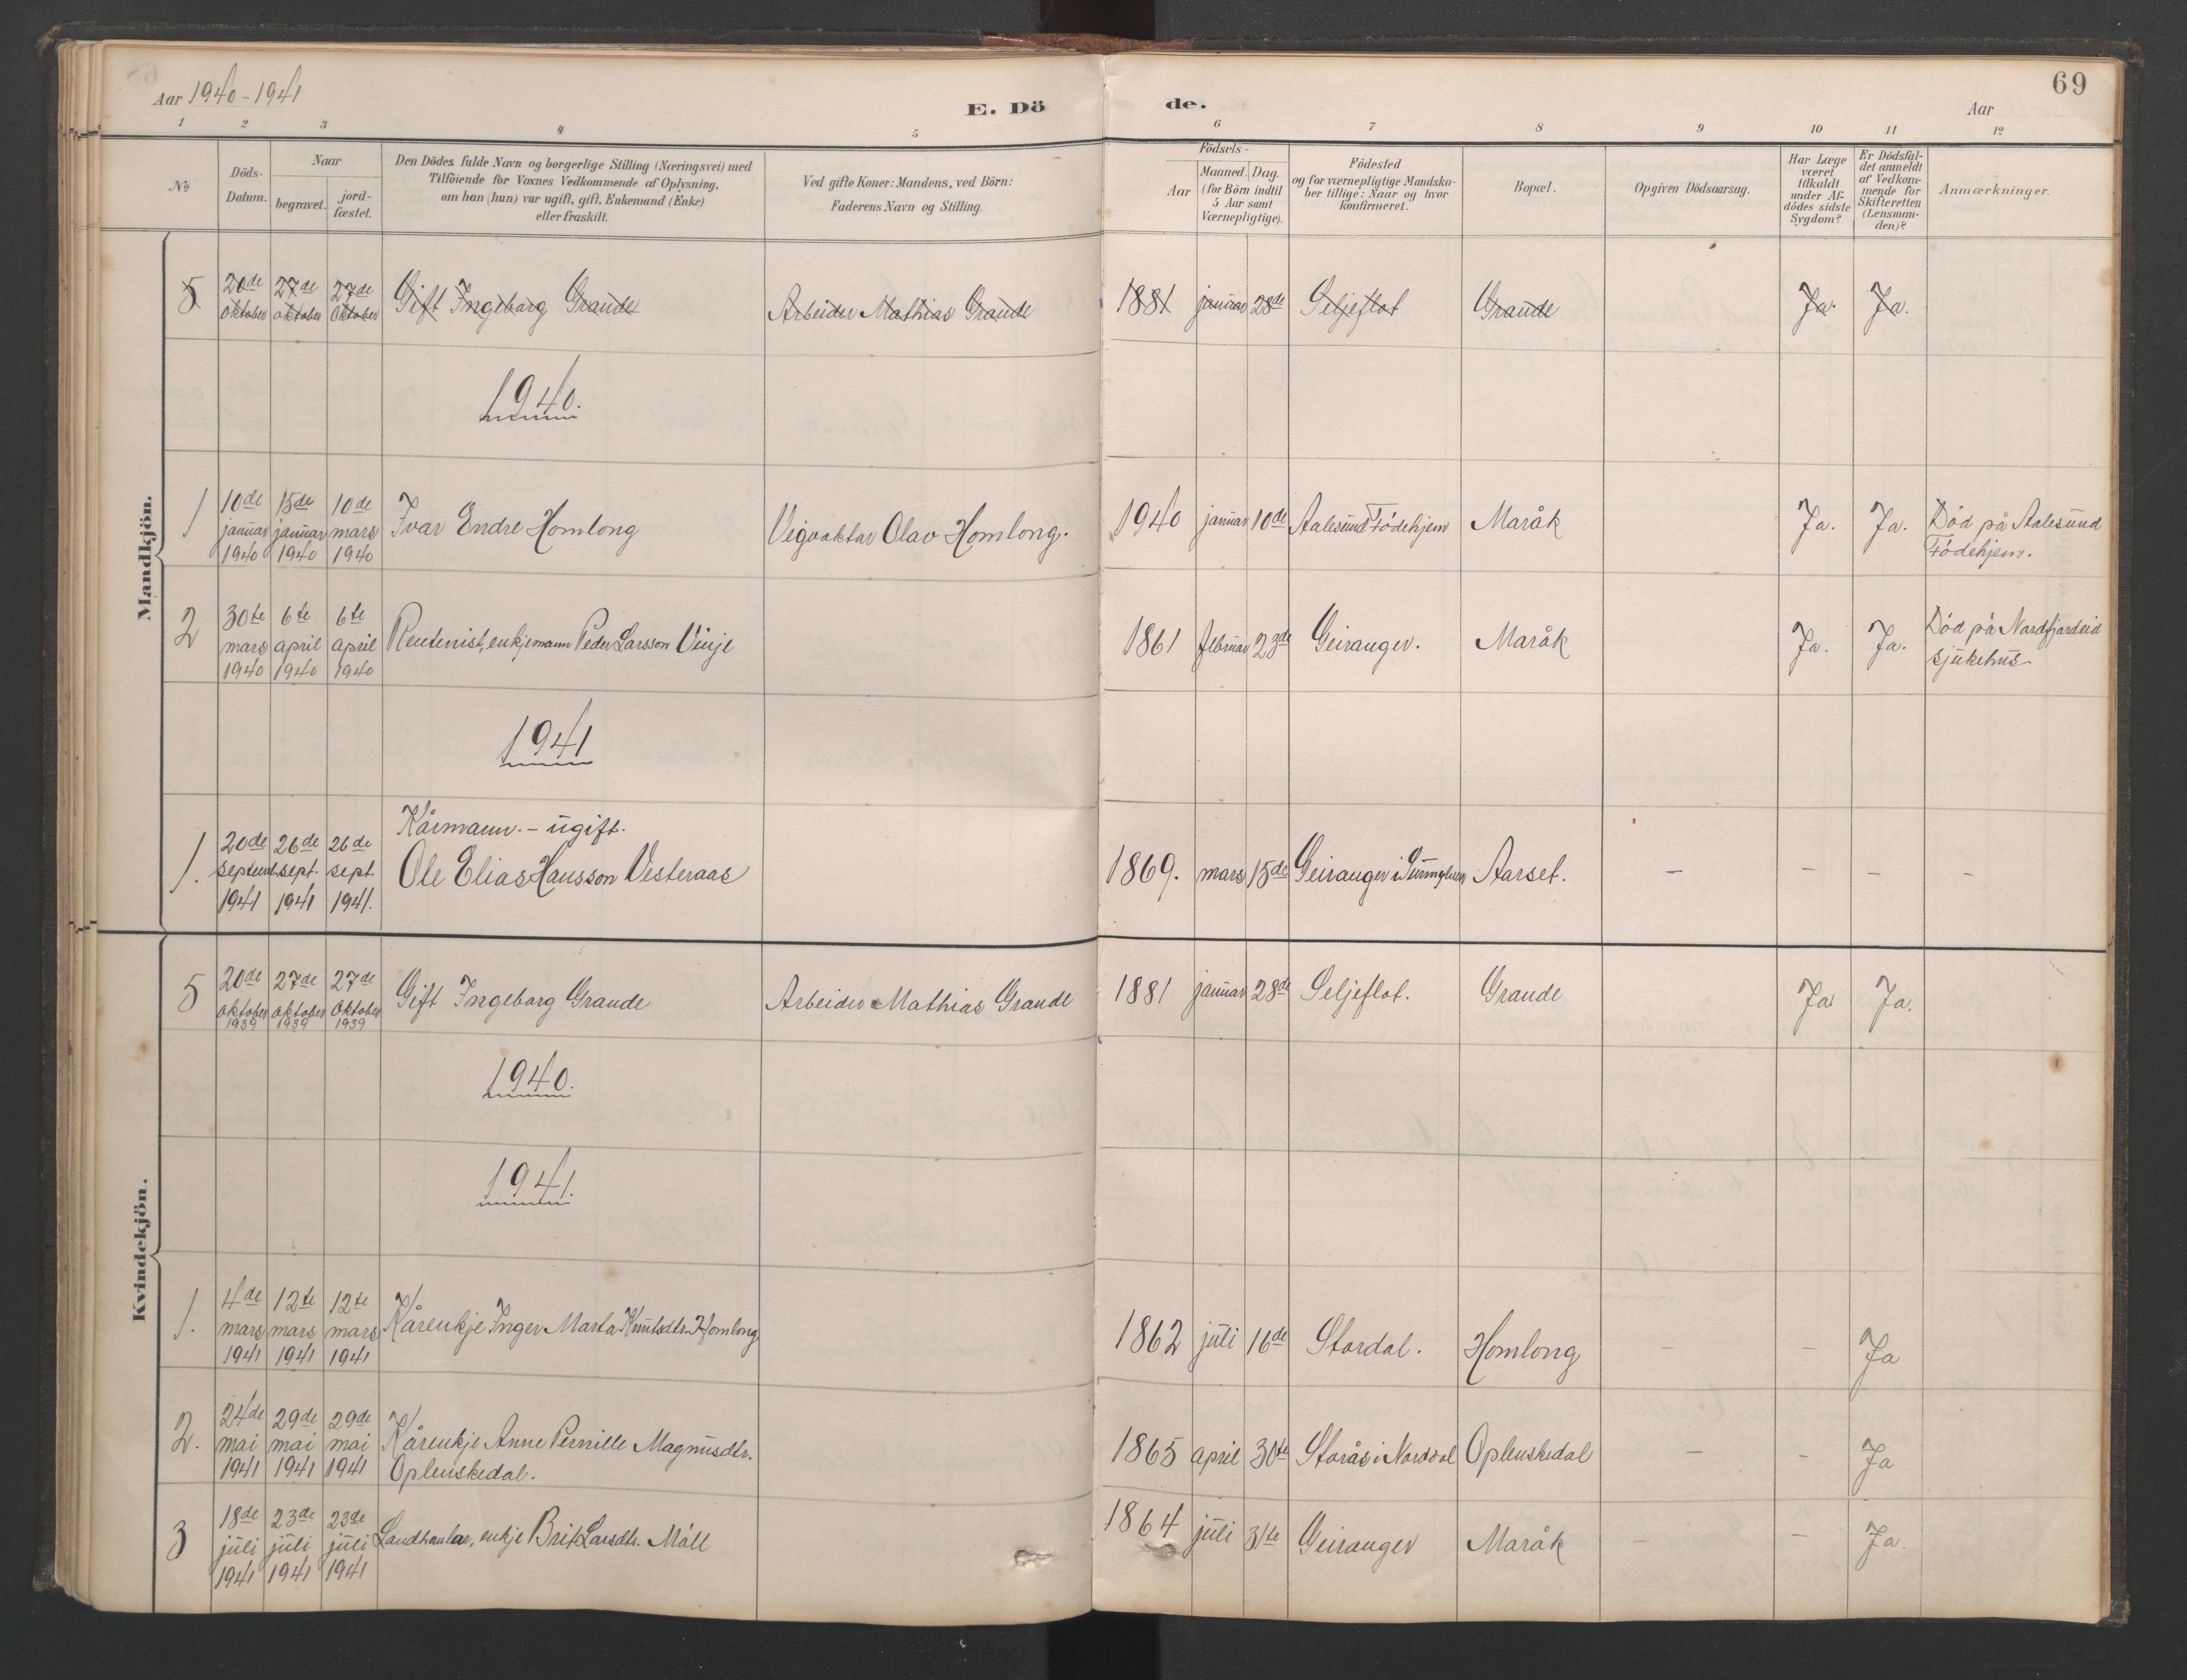 69
Aar 1940-1941
E. Dö de.
Aar
1 2 3 4 5 6 7 8 9 10 11 12
No
Döds-
Datum.
Naar
begravet.
jord-
fæstet.
Den Dödes fulde Navn og borgerlige Stilling (Næringsvei) med
Tilföiende for Voxnes Vedkommende af Oplysning,
om han (hun) var ugift, gift, Enkemand (Enke)
eller fraskilt.
Ved gifte Koner: Mandens, ved Börn:
Faderens Navn og Stilling.
Födsels-
Aar
Maaned. Dag.
(for Börn indtil
5 Aar samt
Værnepligtige).
Födested
og for værnepligtige Mandska-
ber tillige: Naar og hvor
konfirmeret.
Bopæl.
Opgiven Dödsaarsag.
Har Læge
været
tilkaldt
under Af-
dödes sidste
Sygdom?
Er Dödsfal-
det anmeldt
af Vedkom-
mende for
Skifteretten
(Lensman-
den)?
Anmærkninger.
Mandkjön.
5 20de 27de 27de Gift Ingeborg Grande Arbeider Mathias Grande 1881 januar 28de Seljeflot Grande Ja. Ja.
oktober oktober Oktober
1940.
1 10de 15de 10de Ivar Endre Homlong Vegvaktar Olav Homlong. 1940 januar 10de Aalesund Födehjem Maråk Ja. Ja. Död på Aalesund
januar januar mars Födehjem.
1940 1940 1940
2 30te 6te 6te Rentenist, enkjemann Peder Larsson Vinje 1861 februar 23de Geiranger. Maråk Ja. Ja. Död på Nordfjordeid
mars april april sjukehus
1940 1940 1940
1941
Kårmann. - ugift.
1. 20de 26de 26de Ole Elias Hansson Vesteraas 1869. mars 15de Geiranger i Aarset. - - - -
septemb. sept. sept.
1941 1941 1941.
Kvindekjön.
5 20de 27de 27de Gift Ingeborg Grande Arbeider Mathias Grande 1881 januar 28de Seljeflot. Grande Ja Ja.
oktober oktober Oktober
1939 1939 1939
1940.
1941.
1. 4de 12te 12te Kårenkje Inger Marta Knutsdtr. Homlong 1862 juli 16de Stordal. Homlong - - Ja
mars mars mars
1941 1941 1941
2. 24de 29de 29de Kårenkje Anne Pernille Magnusdtr. 1865 april 30te Storås i Norddal Oplenskedal - - Ja
mai mai mai Oplenskedal.
1941 1941 1941
3 18de 23de 23de Landhandlar, enkje Brit Larsdtr. Måll 1864 juli 31te Geiranger Maråk - - Ja.
juli juli juli
1941 1941 1941